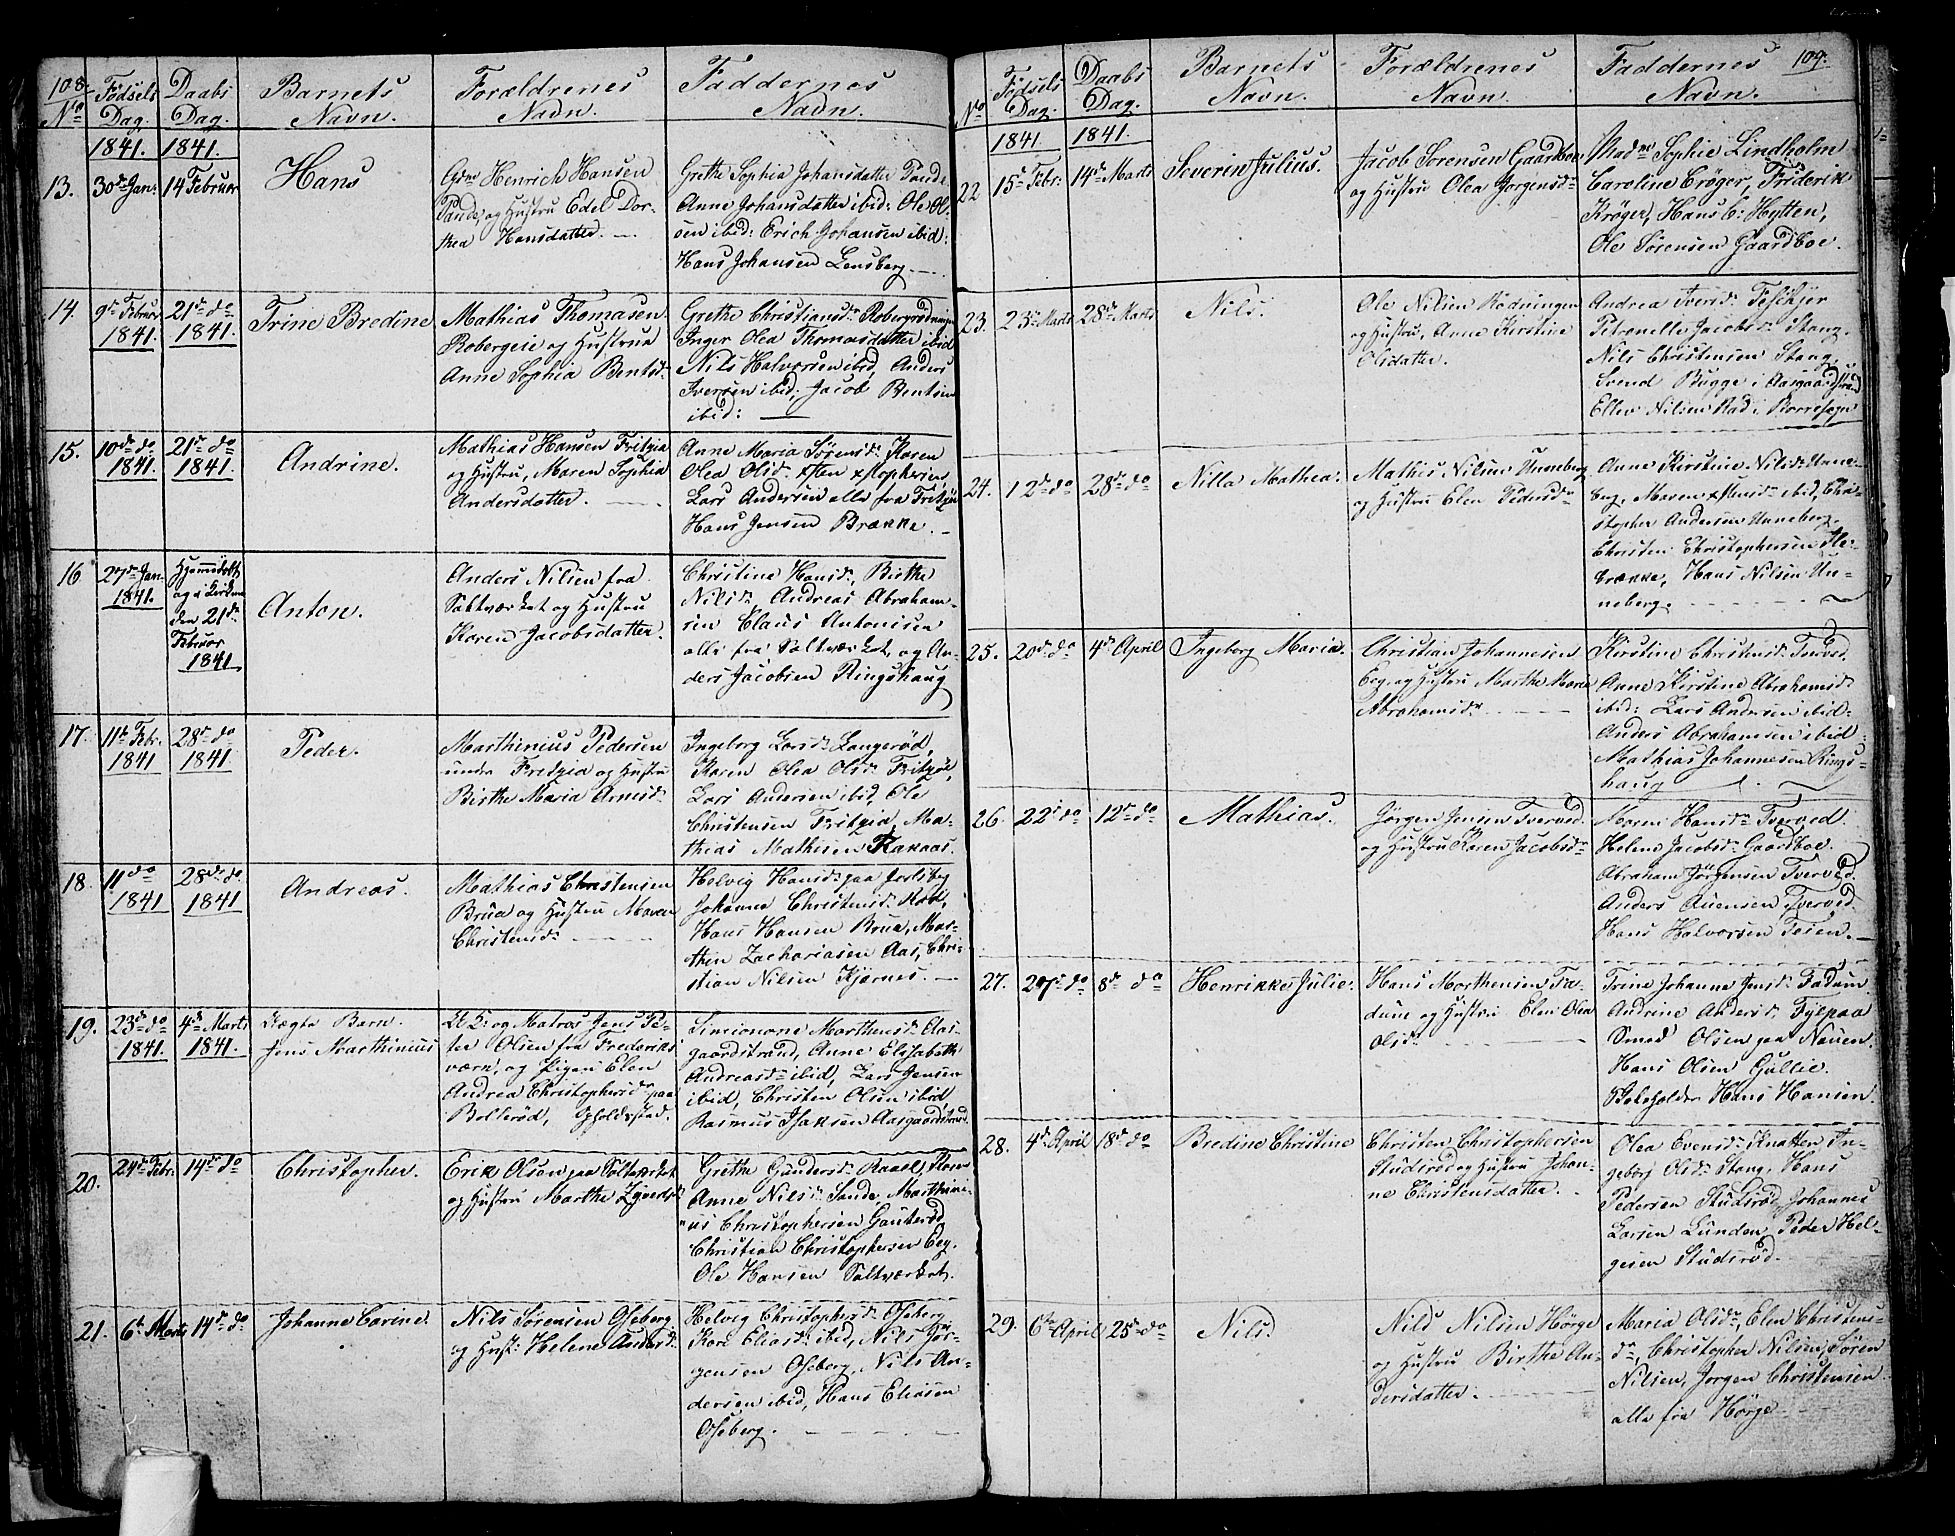 108.
No
Fødsels
Dag.
Daabs
Dag.
Barnets
Navn.
Forældrenes
Navn.
Faddernes
Navn.
1841. 1841.
13. 30te Jan: 14 Februar
Hans
Gdm Henrich Hansen
Sande, og Hustru Edel Dor-
thea Hansdatter.
Grethe Sophia Johansdatter Sande
Anne Johansdatter ibid: Ole Ol-
sen ibid: Erich Johansen ibid:
Hans Johansen Lensberg.
14. 9de Februar 1841. 21de do 1841.
Trine Bredine
Mathias Thomasen
Robergeie og Hustrue
Anne Sophia Bentsd:
Grethe Christiansd:
Inger Olea Thomasdatter ibid
Nils Halvorsen ibid, Anders
Iversen ibid, Jacob Bentsen
ibid:
15. 10de do 1841. 21de do 1841.
Andrine.
Mathias Hansen Fritzøe
og Hustru, Maren Sophia
Andersdatter.
Anne Maria Sørensd: Karen
Olea Olsd:
Lars Andersen alle fra Fritzøe
Hans Jensen Brække.
16. 27de Jan. 1841. Hjemmedøbt
og i Kirken
den 21de
Februar
1841
Anton.
Anders Nilsen fra
Saltværket og Hustru
Karen Jacobsdatter.
Christine Hansd:, Birthe
Nilsd:, Andreas Abraham-
sen, Claus Antonisen
alle fra Saltværket, og An-
ders Jacobsen Ringshaug
17. 11te Febr. 1841 28de do 1841.
Peder.
Marthinius Pedersen
under Fritzøe og Hustru
Birthe Maria Arnesd:
Ingeborg Larsd: Langerød,
Karen Olea Olsd: Fritzøe,
Lars Andersen ibid, Ole
Christensen Fritzøe, Ma-
thias Mathisen Rakaas.
18. 11 do 1841 28de do 1841
Andreas.
Mathias Christensen
Brua og Hustru Maren
Christensd:
Helvig Hansd: paa Jarlsberg
Johanne Christensd: Rød,
Hans Hansen Brua, Mar-
thin Zachariasen Aas, Chri-
stian Nilsen Kjærnes.
19. 23de do 1841. 4de Marts 1841.
Uægte Barn.
Jens Marthinius
U. K. og Matros Jens Pe-
ter Olsen fra Frederiks-
værn, og Pigen Elen
Andrea Christophersd: paa
Bolterød,
Simionone Marthinsd: Aas-
gaardstrand, Anne Elisabeth
Andreasd: ibid, Lars Jensen
ibid, Christen Olsen ibid
Rasmus Isaksen Aasgaardstrand
20. 24de Febr. 14de do
Christopher.
Erik Olsen paa Saltværket
og Hustru Marthe
Grethe Gundersd:
Anne Nilsd: Sande, Marthini-
us Christophersen Gauterød
Christian Christophersen Eeg.
Ole Hansen Saltværket.
21. 6te Marts 14de do
Johanne Carine.
Nils Sørensen Oseberg
og Hust: Helene Andersd:
Helvig Christophersd: Oseberg
Kari Eliasd: ibid, Nils Jør-
gensen Oseberg, Nils An-
dersen ibid, Hans Eliasen
Oseberg.
109.
No
Fødsels
Dag.
Daabs
Dag.
Barnets
Navn.
Forældrenes
Navn.
Faddernes
Navn.
1841 1841.
22 15de Febr: 14de Marts
Severin Julius.
Jacob Sørensen Gaardboe
og Hustru Olea Jørgensdr
Madme Sophie Lindholm
Caroline Crøger, Friderik
Krøger, Hans C: Hytten,
Ole Sørensen Gaardboe.
23. 23de Marts 28de Marts
Nils.
Ole Nilsen Rødningen
og Hustru, Anne Kirstine
Olsdatter.
Andrea Iversd:
Petronelle Jacobsd: Stang.
Nils Christensen Stang,
Svend Bugge i Aasgaardstrand
Ellev Nilsen Rød i Borresogn
24. 12de do 28de do
Nilla Mathea.
Mathis Nilsen Unneberg
og Hustru Elen Pedersdr
Anne Kirstine Nilsd: Unne-
berg, Maren ibid, Chri-
stopher Andersen Unneberg.
Christen Christophersen He-
brække, Hans Nilsen Un-
neberg.
25. 20de do 4de April
Ingeborg Maria.
Christian Johannesen
Eeg, og Hustru Marthe Maria
Abrahamsdr
Kirstine Christensd: Tverved
Anne Kirstine Abrahamsd:
ibid: Lars Andersen ibid:
Anders Abrahamsen ibid
Mathias Johannesen Rings-
haug
26. 22de do 12te do
Mathias.
Jørgen Jensen Tverved.
og Hustru Karen Jacobsdr
Maren Hansdr Tverved
Helene Jacobsd: Gaardboe.
Abraham Jörgensen Tverved.
Anders Auensen Tverved.
Hans Halvorsen Teien.
27. 27de do 8de do
Henrikke Julie.
Hans Marthinsen Fa-
dum og Hustru Elen Olea
Olsd:
Trine Johanne Jensd: Fadum
Andrine Andersd: Fylpaa
Smed Olsen paa Nauen.
Hans Olsen Gullie.
Hans Hansen.
28. 4de April 18de do
Bredine Christine
Christen Christophersen
Studsrød og Hustru Johan-
ne Christensdatter.
Olea Evensd: Knatten, In-
geborg Olsd: Stang, Hans
Pedersen Studsrød, Johannes
Larsen Lunden, Peder Hel-
gesen Studsrød.
29. 6te April 25de do
Nils.
Nils Nilsen Hørge
og Hustru Birthe An-
dersdatter.
Maria Olsdr, Elen Christens-
dr, Christopher Nilsen, Søren
Nilsen, Jørgen Christensen
alle fra Hørge